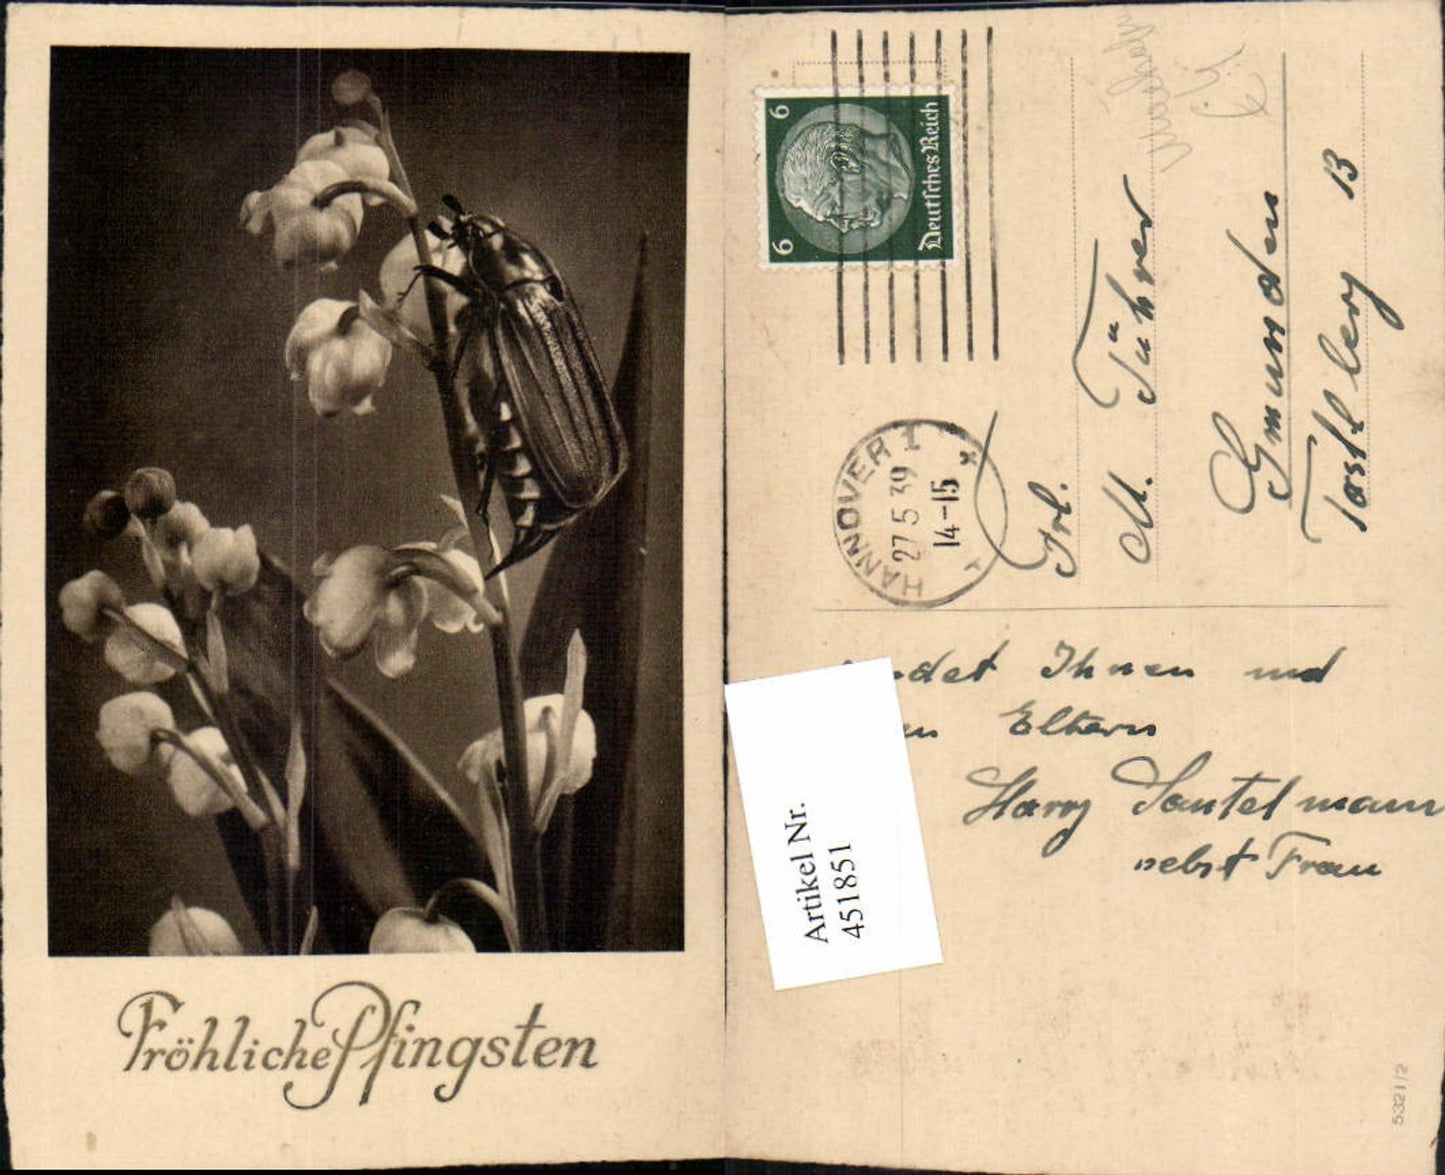 Fröhliche Pfingsten
6 6
Deutsches Reich
HANNOVER 1
27 5 39
14-15
Frl.
M. Führer
Gmunden
B
ndet Ihnen und
en Eltern
Harry Santelmann
nebst Frau
Artikel Nr.
451851
5321/2